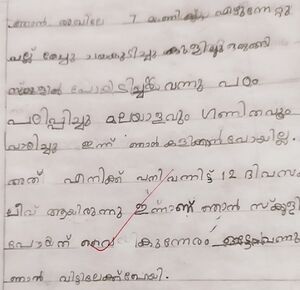 ഞാൻ രാവിലെ 7 മണിക്കു എഴുന്നേറ്റു
പല്ല് തേച്ചു ചായകുടിച്ചു കുളിച്ചു ഒരുങ്ങി
സ്കൂളിൽ പോയി ടീച്ചർ വന്നു പഠം
പഠിപ്പിച്ചു മലയാളവും ഗണിതവും
പഠിച്ചു ഇന്ന് ഞാൻ കളിക്കാൻ പോയില്ല.
അത് എനിക്ക് പനി വന്നിട്ട് 12 ദിവസം
ലീവ് ആയിരുന്നു ഇന്നാണ് ഞാൻ സ്കൂളി
പോയത് വൈ കുന്നേരം വന്നു
ഞാൻ വിട്ടിലേക്ക് പോയി.